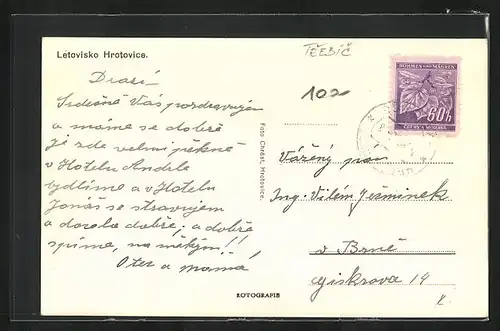 Letovisko Hrotovice.
TŘEBÍČ
100
BÖHMEN UND MÄHREN
60h
ČECHY A MORAVA
Drazí
Srdečně Vás pozdravujem
a máme se dobře
je zde velmi pěkně
v Hotelu Anděla
bydlíme a v Hotelu
Jonáš se stravujem
a docela dobře, a dobře
spíme, na měkkým!!
Otec a máma
Foto Chrást, Hrotovice.
Vážený pan
Ing. Vilém Ješminek
v Brně
Giskrova 14
ROTOGRAFIE